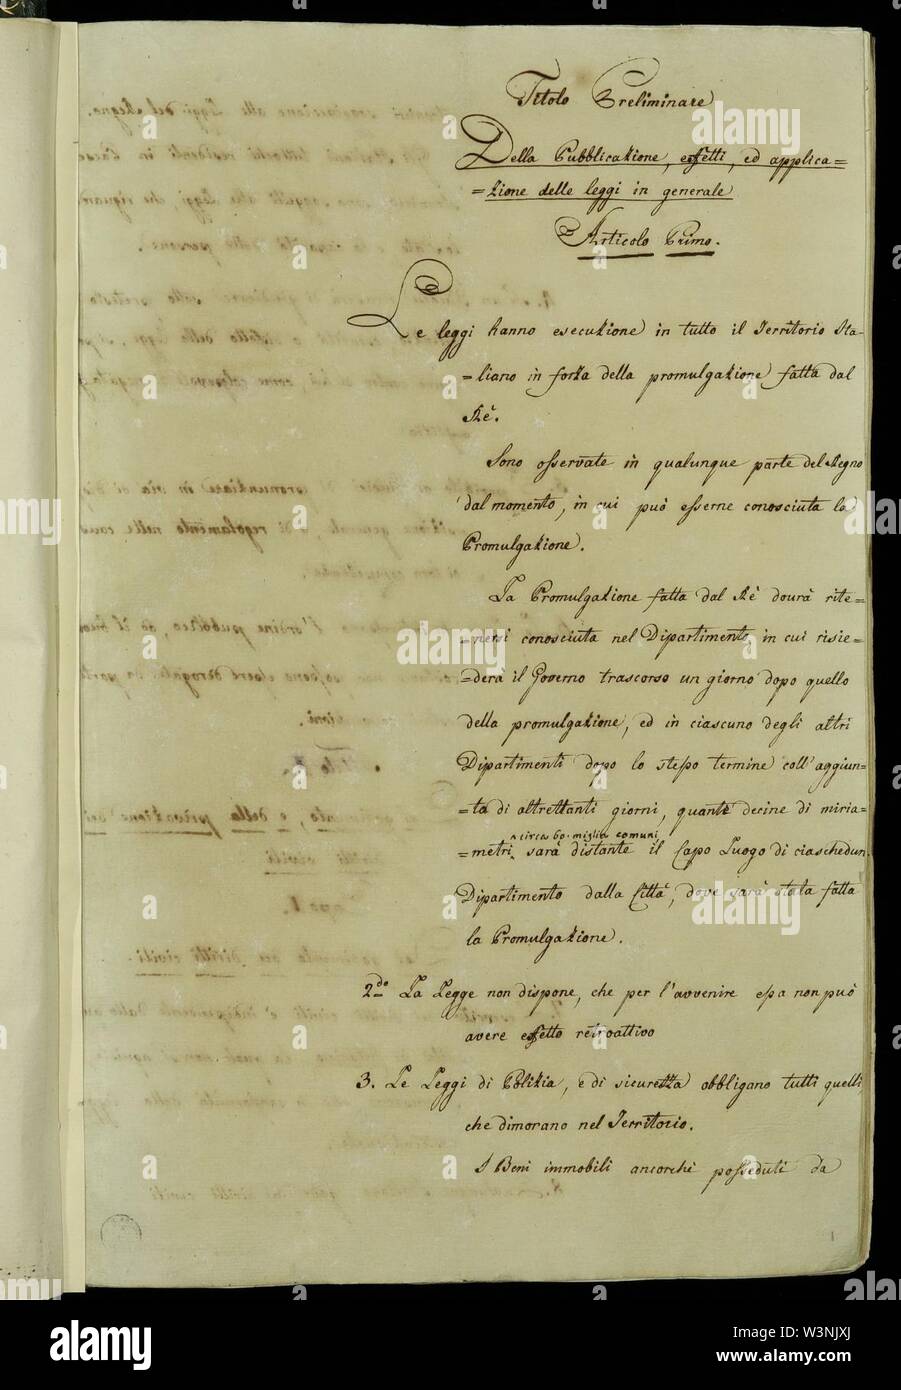 Titolo Preliminare
Della Pubblicazione, effetti, ed applica=
=zione delle leggi in generale
Articolo Primo.
Le leggi hanno esecuzione in tutto il Territorio Ita-
=liano in forza della promulgazione fatta dal
Rè.
Sono osservate in qualunque parte del Regno
dal momento, in cui può esserne conosciuta la
Promulgazione.
La Promulgazione fatta dal Rè dourà rite=
=nersi conosciuta nel Dipartimento, in cui risie=
=derà il Governo trascorso un giorno dopo quello
della promulgazione, ed in ciascuno degli altri
Dipartimenti dopo lo stesso termine coll'aggiun=
=ta di altrettanti giorni, quante decine di miria=
^ circa 60. miglia comuni
=metri ^ sarà distante il Capo Luogo di ciaschedun
Dipartimento dalla Città, dove sarà stata fatta
la Promulgazione.
2do La Legge non dispone, che per l'avvenire essa non può
avere effetto retroattivo
3. Le Leggi di Polizia, e di sicurezza obbligano tutti quelli,
che dimorano nel Territorio.
I Beni immobili ancorchè posseduti da
1
a alamy stock photo
alamy
Image ID: W3NJXJ
www.alamy.com